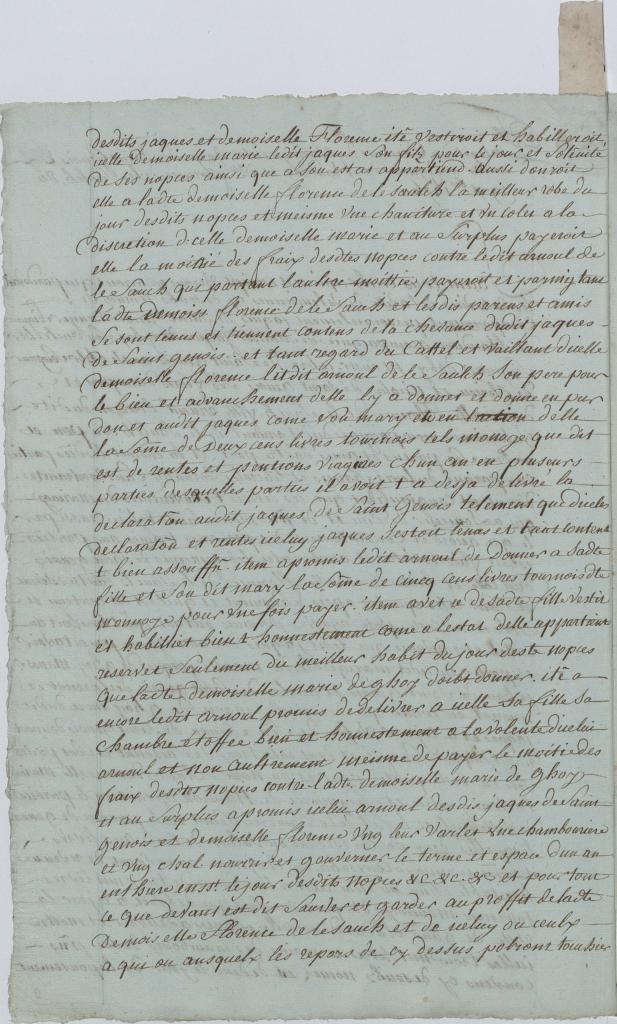 desdits jaques et demoiselle Florence itē vestiroit et habilleroit
icelle Demoiselle marie ledit jaques son fils pour le jour et solemnité
de ses nopces ainsi que a son estat appartiend. aussi donroit
elle a ladte demoiselle florence de le saulch la meilleur robe du
jour desdits nopces et meisme une chainture et un colet a la
discretion dicelle demoiselle marie et au surplus payeroit
elle la moitié des fraix desdtes nopces contre ledit arnoul de
le Sauch qui partant laultre moittié payeroit et parmy tant
ladte Demoise florence de le Sauch et lesdis parens et amis
se sont tenus et tiennent contens de la chevance dudit jaques
de Saint genois : et tant regard du Cattel et vaillant dicelle
demoiselle florence ledit arnoul de le Saulch son pere pour
le bien et advanchement delle ly a donner et donne en pur
don et audit jaques come son mary et en action delle
la some de deux cens livres tournois tels monoye que dit
est de rentes et pentions viagires chun an en pluseurs
parties desquelles parties il avoit t a desja delivré la
declaraton audit jaques de Saint Genois telement que dicelles
declaraton et rentes iceluy jaques sestoit tenus et tant content
t bien assouffy. item a promis ledit arnoul de Donner a sadte
fille et son dit mary la some de cincq cens livres tournois dte
monnoye pour une fois payer. item avec ce de sadte fille vestir
et habillier bien t honnestement come a lestat delle appartient
reservet seulement du meilleur habit du jour deste nopces
que ladte demoiselle marie de ghoy doibt donner. itē a
encore ledit arnoul promis de delivrer a icelle sa fille sa
chambre étoffee bien et honnestement a la volenté dicelui
arnoul et non aultrement meisme de payer le moitié des
fraix desdtes nopces contre ladte demoiselle marie de ghoy
et au surplus a promis icelui arnoul desdis jaques de Saint
genois et demoiselle florence ung leur varlet une chambouriere
et ung chal nourrir et gouverner le terme et espace dun an
enthiere ensst le jour desdits nopces &c &c &c et pour tout
ce que devant est dit sauver et garder au proffit de ladte
demoiselle Florence de le sauch et de iceluy ou ceulx
a qui ou ausquelx les repors de cy dessus polront touchier